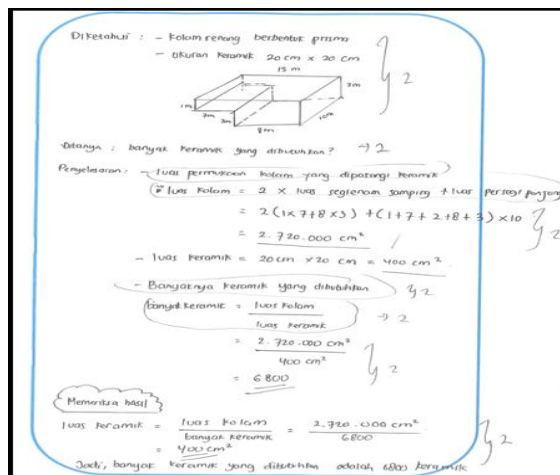 Diketahui : - Kolam renang berbentuk prisma
- Ukuran keramik 20 cm x 20 cm
2
15 m
3m
1m
7m
3m
8m
10m
Ditanya : banyak keramik yang dibutuhkan? → 2
Penyelesaian : - luas permukaan kolam yang dipasangi keramik
luas kolam = 2 x luas segienam samping + luas persegi panjang
= 2 (1x7+8x3) + (1+7+2+8+3) x10
= 2.720.000 cm²
2
- luas keramik = 20cm x 20 cm = 400 cm²
- Banyaknya keramik yang dibutuhkan 2
banyak keramik = luas kolam / luas keramik → 2
= 2.720.000 cm² / 400 cm²
= 6800
2
Memeriksa hasil
luas keramik = luas kolam / banyak keramik = 2.720.000 cm² / 6800
= 400 cm²
2
Jadi, banyak keramik yang dibutuhkan adalah 6800 keramik